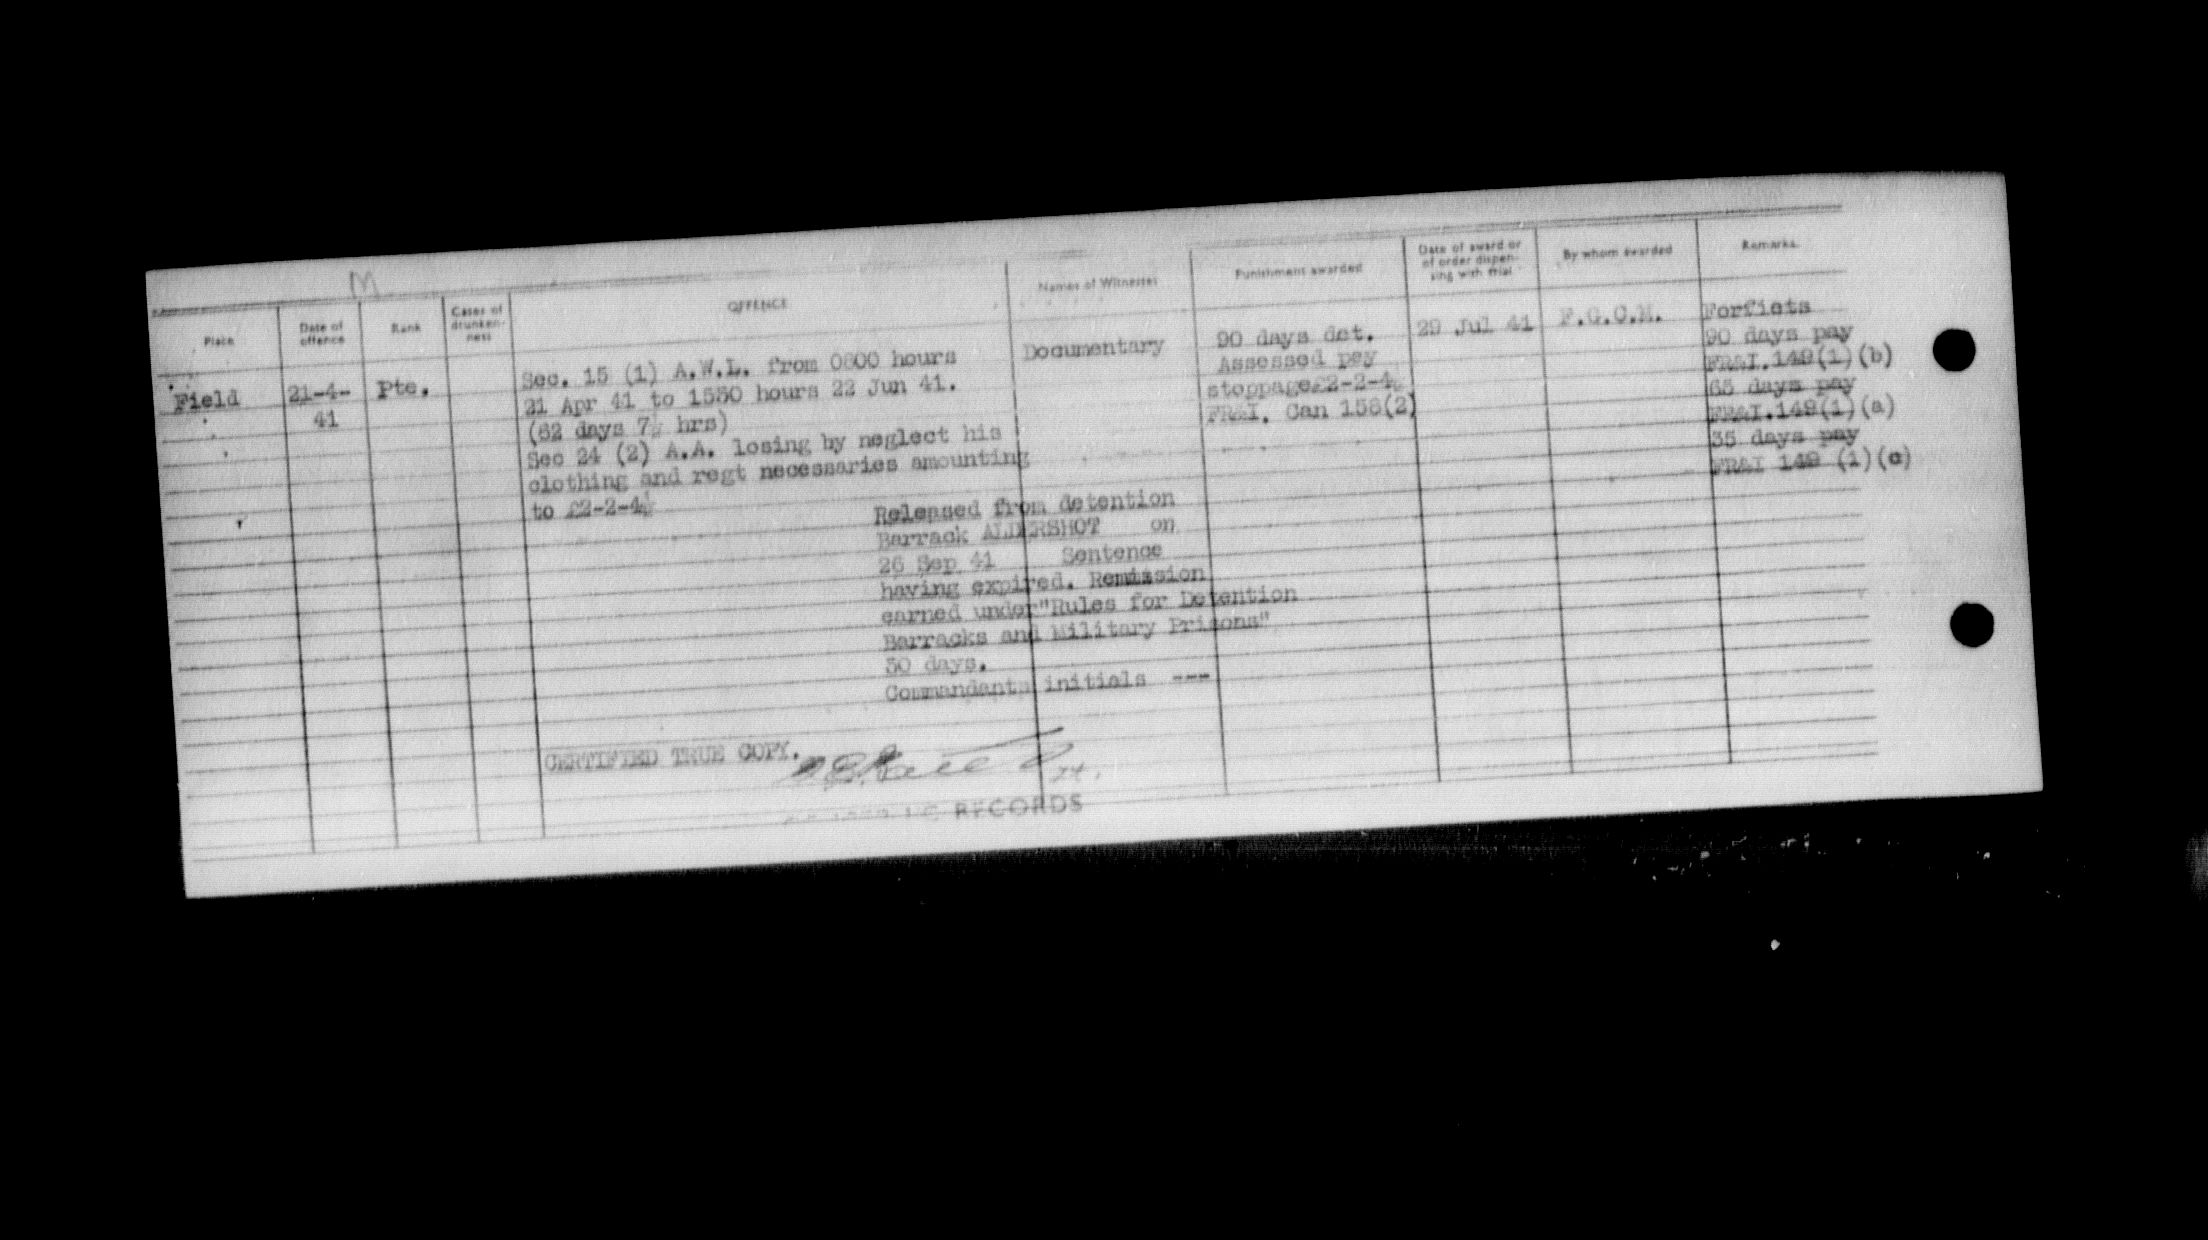 M
Place
Date of
offence
Rank
Cases of
drunken-
ness
OFFENCE
Names of Witnesses
Punishment awarded
Date of award or
of order dispen-
sing with trial
By whom awarded
Remarks
Field
21-4-
41
Pte.
Sec. 15 (1) A.W.L. from 0800 hours
21 Apr 41 to 1530 hours 22 Jun 41.
(62 days 7½ hrs)
Sec 24 (2) A.A. losing by neglect his
clothing and regt necessaries amounting
to £2-2-4½
Documentary
90 days det.
Assessed pay
stoppage£2-2-4½
FR&I. Can 158(2)
29 Jul 41
F.G.C.M.
Forfiets
90 days pay
FR&I.149(1)(b)
65 days pay
FR&I.149(1)(a)
35 days pay
FR&I 149 (1)(c)
Released from detention
Barrack ALDERSHOT on
26 Sep 41 Sentence
having expired. Remission
earned under"Rules for Detention
Barracks and Military Prisons"
30 days.
Commandants initials ---
CERTIFIED TRUE COPY.
Lt.
RECORDS